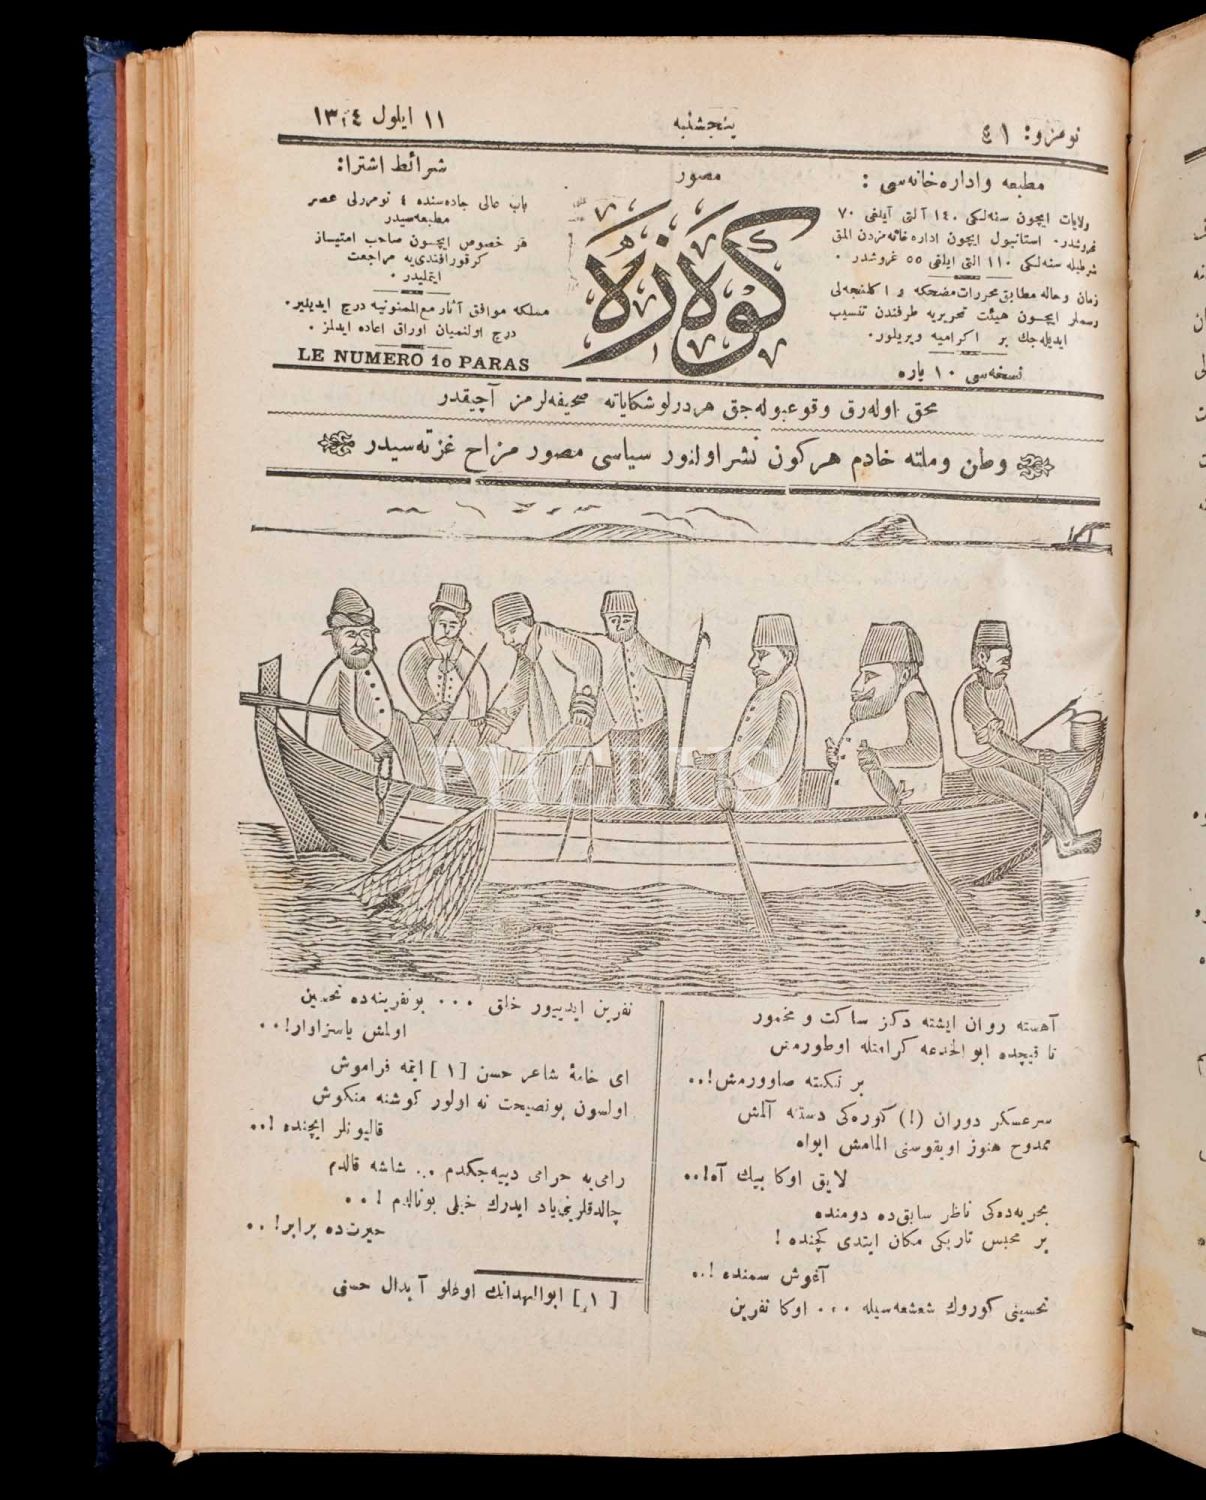 نومرو: ٤١
پنجشنبه
١١ ايلول ١٣٢٤
مطبعه و اداره‌خانه‌سی :
ولايات ايچون سنه‌لكی ١٤٠ آلتی آيلغی ٧٠
غروشدر. استانبول ايچون اداره‌خانه‌مزدن آلمق
شرطيله سنه‌لكی ١١٠ التی ايلغی ٥٥ غروشدر .
زمان و حاله مطابق محررات مضحكه و اكلنجه‌لی
رسملر ايچون هيئت تحريريه طرفندن تنسيب
ايديله‌جك بر اكراميه ويريلور.
نسخه‌سی ١٠ پاره
مصور
كوله زه
شرائط اشترا:
باب عالی جاده‌سنده ٤ نومرولی عصر
مطبعه‌سيدر
هر خصوص ايچون صاحب امتياز
كرقور افندی‌يه مراجعت
ايتمليدر .
مسلكه موافق آثار مع‌الممنونيه درج ايديلير.
درج اولنميان اوراق اعاده ايدلمز .
LE NUMERO 10 PARAS
محق اوله‌رق وقوعبوله‌جق هر درلو شكاياته صحيفه‌لرمز آچيقدر
وطن و ملته خادم هر كون نشر اولنور سياسی مصور مزاح غزته‌سيدر
PHEBUS
آهسته روان ايشته دكز ساكت و مخمور
تا قيچده ابوالخدعه كرامتله اوطورمش
بر نكته صاوورمش!..
سرعسكر دوران (!) كوره‌كی دسته آلمش
ممدوح هنوز اويقوسنی آلمامش ايواه
لايق اوكا بيك آه!..
بحريه‌ده‌كی ناظر سابق‌ده دومنده
بر محبس تاريكی مكان ايتدی كچنده !
آغوش سمنده !..
تحسينی كوروك شعشعه‌سيله ... اوكا نفرين
نفرين ايدييور خلق ... بو نفرينه‌ده تحسين
اولمش ياسزاوار!..
ای خامهٔ شاعر حسن [١] ايتمه فراموش
اولسون بو نصيحت نه اولور كوشنه منكوش
قاليونلر ايچنده !..
رامی‌يه حرامی ديیه‌جكدم .. شاشه قالدم
چالدقلرينی ياد ايدرك خيلی بوناالدم !..
حيرت‌ده برابر!..
[١] ابوالهدانك اوغلو آبدال حسنی